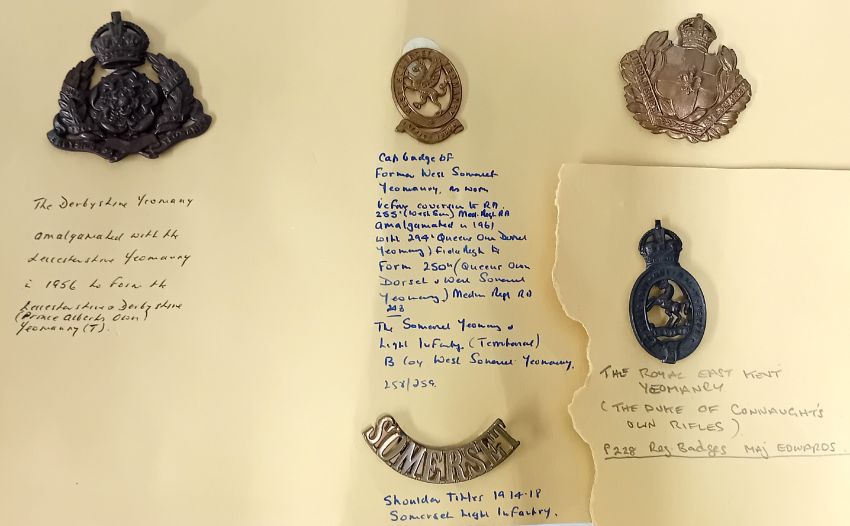 The Derbyshire Yeomanry
amalgamated with the
Leicestershire Yeomanry
in 1956 to form the
Leicestershire & Derbyshire
(Prince Alberts Own)
Yeomanry (T).
Cap badge of
Former West Somerset
Yeomanry, as worn
before conversion to RA.
255th (West Som) Med. Regt RA
Amalgamated in 1961
with 294th Queens Own Dorset
Yeomanry) Field Regt to
Form 250th (Queens Own
Dorset & West Somerset
Yeomanry) Medium Regt RA
243
The Somerset Yeomanry &
Light Infantry (Territorial)
B Coy West Somerset Yeomanry.
258/259.
SOMERSET
Shoulder Titles 1914-18
Somerset Light Infantry.
THE ROYAL EAST KENT
YEOMANRY
(THE DUKE OF CONNAUGHT'S
OWN RIFLES)
P228 Reg. Badges MAJ EDWARDS.